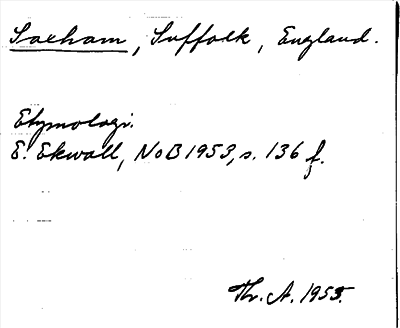 Saxham, Suffolk, England.
Etymologi.
E. Ekwall, NoB 1953, s. 136 f.
Thr. A. 1955.